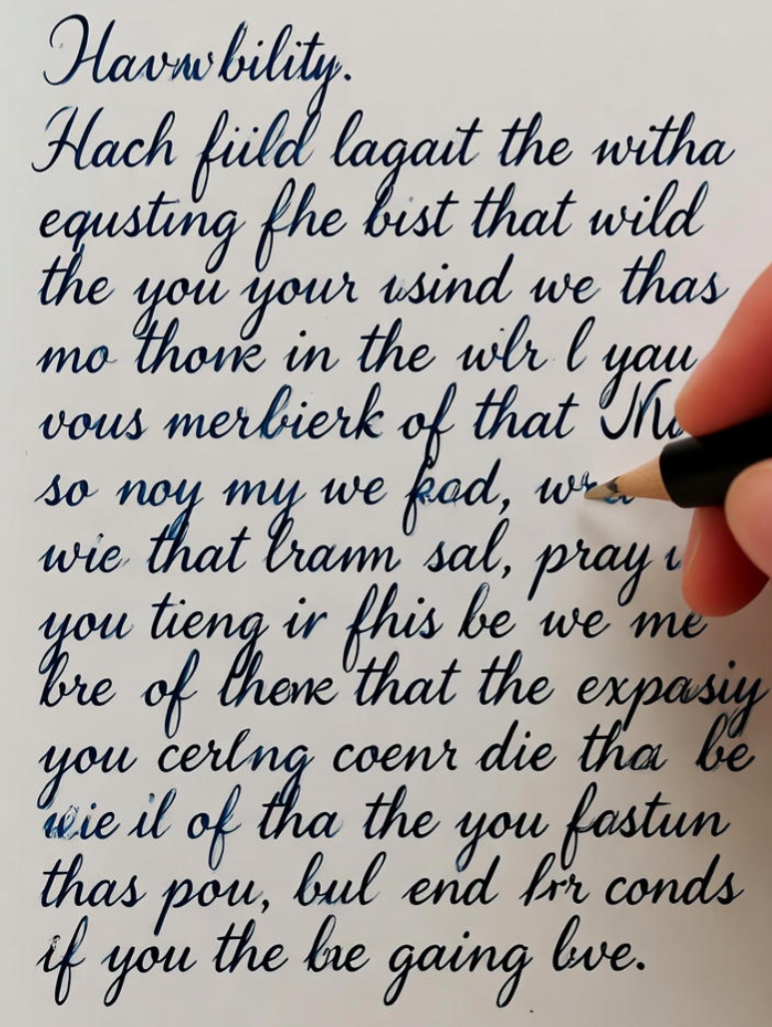 Havwbility.
Hach fiild lagait the witha
equsting fhe bist that wild
the you your usind we thas
mo thonk in the wlr l yau
vous merbierk of that
so noy my we kad,
wie that lrann sal, pray
you tieng ir fhis be we me
bre of thenk that the expasiy
you cerlng coenr die tha be
wie il of tha the you fastun
thas pou, bul end lrr conds
if you the bre gaing lwe.